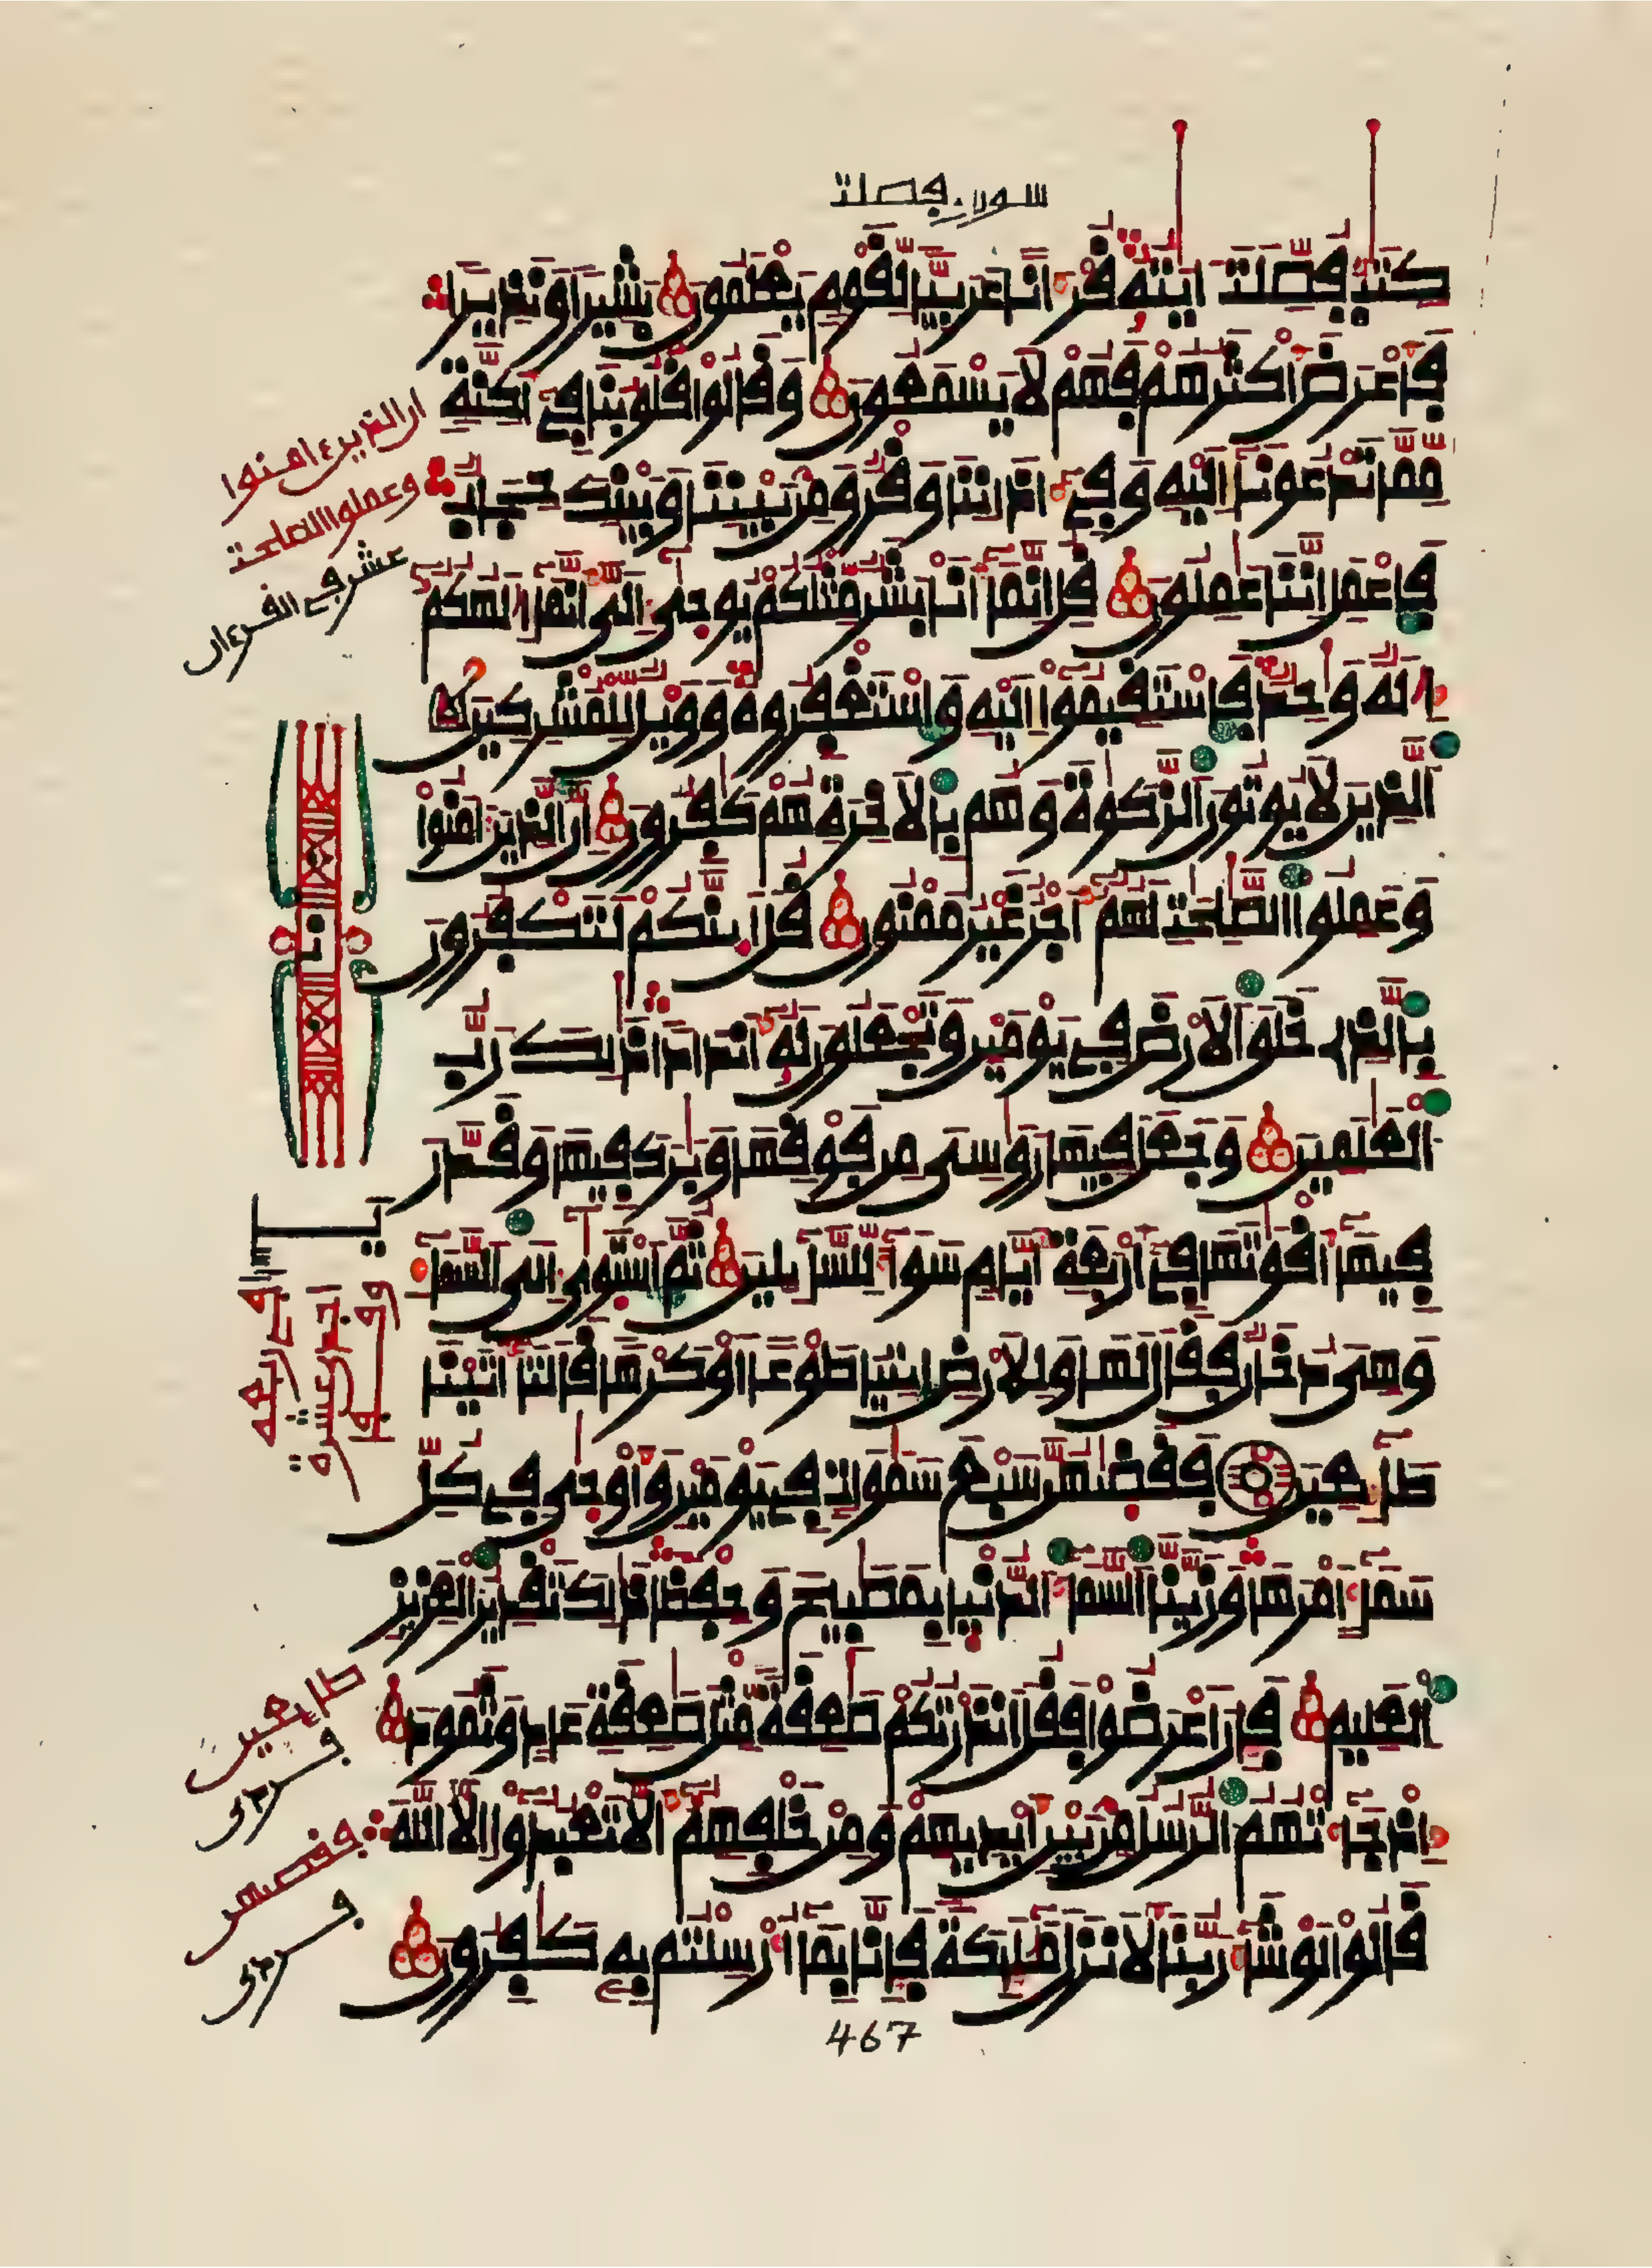 سورة فصلت
كتب فصلت ايته قرانا عربيا لقوم يعلمون بشيرا ونذيرا
فاعرض اكثرهم فهم لا يسمعون وقالوا قلوبنا في اكنة
مما تدعونا اليه وفي اذاننا وقر ومن بيننا وبينك حجاب
فاعمل اننا عملون قل انما انا بشر مثلكم يوحى الى انما الهكم
اله وحد فاستقيموا اليه واستغفروه وويل للمشركين
الذين لا يوتون الزكوة وهم بالاخرة هم كفرون ان الذين امنوا
وعملوا الصلحت لهم اجر غير ممنون قل اينكم لتكفرون
بالذي خلق الارض في يومين وتجعلون له اندادا ذلك رب
العلمين وجعل فيها روسى من فوقها وبرك فيها وقدر
فيها اقوتها في اربعة ايام سوا للسايلين ثم استوى الى السما
وهى دخان فقال لها وللارض ايتيا طوعا او كرها قالتا اتينا
طايعين فقضيهن سبع سموات في يومين واوحى في كل
سما امرها وزينا السما الدنيا بمصبيح وحفظا ذلك تقدير العزيز
العليم فان اعرضوا فقل انذرتكم صعقة مثل صعقة عاد وثمود
اذ جاتهم الرسل من بين ايديهم ومن خلفهم الا تعبدوا الا الله
قالوا لو شا ربنا لانزل مليكة فانا بما ارسلتم به كافرون
ان الذين ءامنوا
وعملوا الصلحت
عشر في القرءان
طايعين
فقضيهن
467